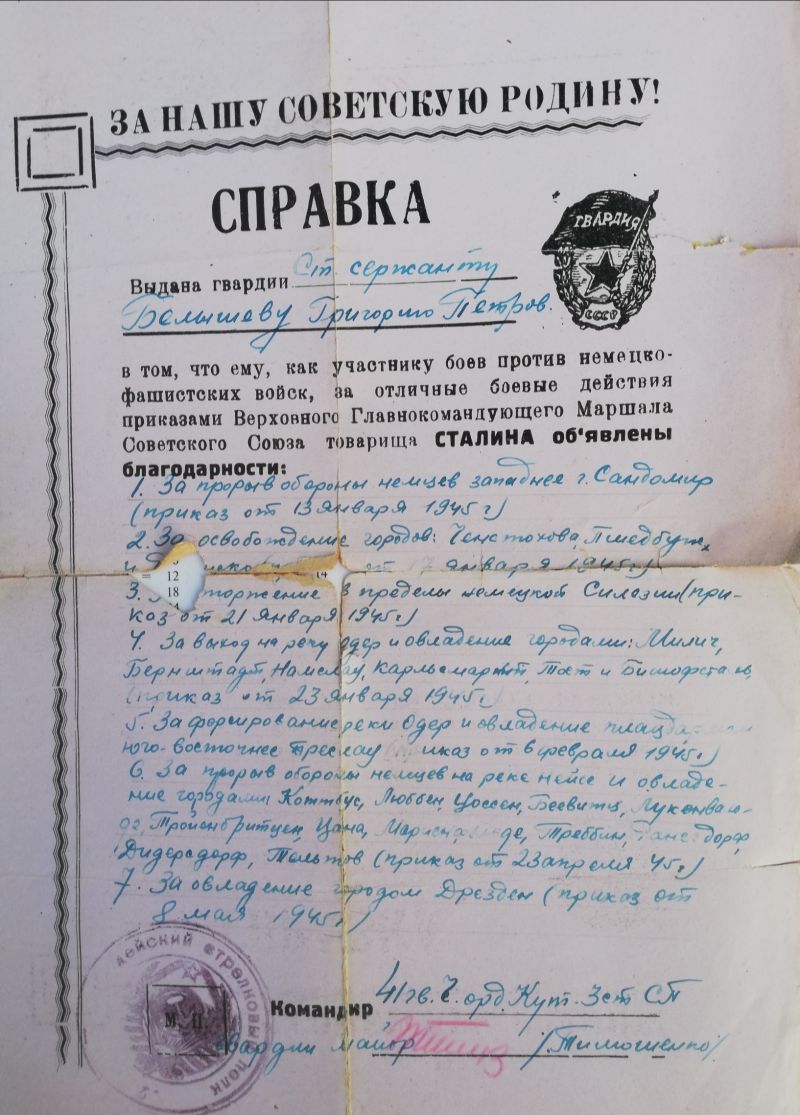 ЗА НАШУ СОВЕТСКУЮ РОДИНУ!
СПРАВКА
ГВАРДИЯ
СССР
Выдана гвардии Ст. сержанту
Белышеву Григорию Петров.
в том, что ему, как участнику боев против немецко-
фашистских войск, за отличные боевые действия
приказами Верховного Главнокомандующего Маршала
Советского Союза товарища СТАЛИНА об'явлены
благодарности:
1. За прорыв обороны немцев западнее г. Сандомир
(приказ от 13 января 1945 г)
2. За освобождение городов: Ченстохова, Пшедбуж,
и от 17 января 1945г)
= 12 14
18
3. в пределы немецкой Силезии (при-
каз от 21 января 1945г)
4. За выход на реку Одер и овладение городами: Милич,
Бернштадт, Намслау, Карльсмаркт, Тост и Бишофсталь,
(приказ от 23 января 1945г)
5. За форсирование реки Одер и овладение
юго-восточнее Бреслау (приказ от 6 февраля 1945г)
6. За прорыв обороны немцев на реке Нейсе и овладе-
ние городами Коттбус, Люббен, Цоссен, Беевитц,
Тройенбритцен, Цана, Треббин,
Дидерсдорф, Тельтов (приказ от 23 апреля 45г)
7. За овладение городом Дрезден (приказ от
8 мая 1945г)
стрелковый полк
М. П.
Командир 41 гв. орд. Кут. 3 ст СП
гвардии майор /Тимошенко/